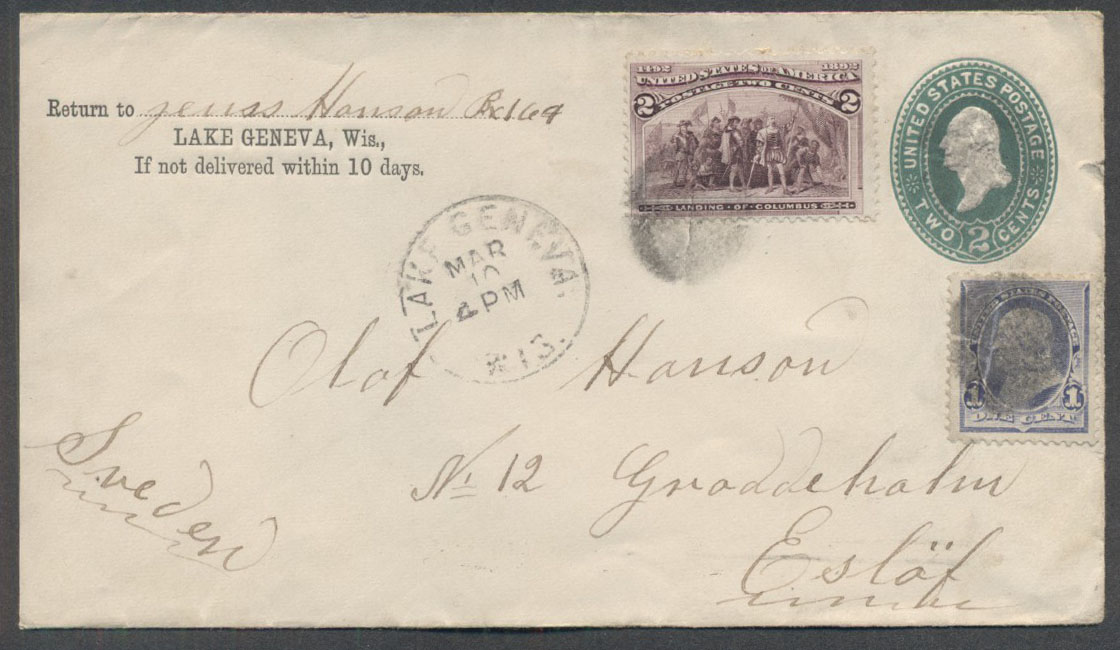 Return to Jenss Hanson Bx 164
LAKE GENEVA, Wis.,
If not delivered within 10 days.
1492 1892
UNITED STATES OF AMERICA
POSTAGE TWO CENTS
2 2
LANDING · OF · COLUMBUS
UNITED STATES POSTAGE
TWO 2 CENTS
LAKE GENEVA.
MAR
10
4 PM
WIS.
UNITED STATES POSTAGE
1 1
ONE CENT
Olof Hanson
No 12 Groddeholm
Eslöf
Sveden